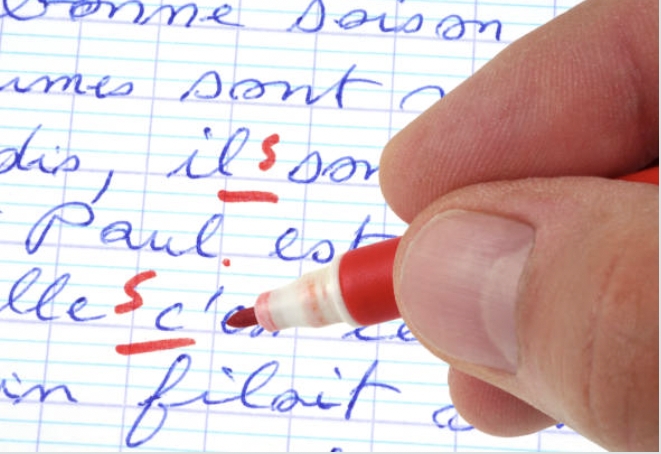 bonne saison
umes sont
dis, ils son
Paul. est
lles c'e
in filait